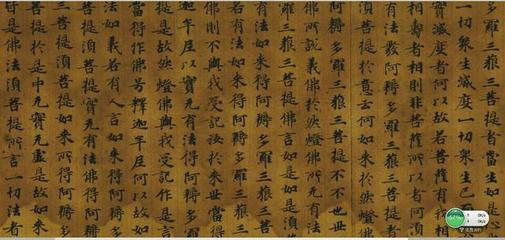 多羅三藐三菩提者當生如是心
一切衆生滅度一切衆生已而
實滅度者何以故若菩薩有我相
壽者相則非菩薩所以者何須
有法發阿耨多羅三藐三菩提者
菩提於意云何如來於然燈佛
阿耨多羅三藐三菩提不不也世
佛所說義佛於然燈佛所无有法
三藐三菩提佛言如是如是須
有法如來得阿耨多羅三藐三
若有法如來得阿耨多羅三
佛則不與我受記汝於來世當
迦牟尼以實无有法得阿耨多
是故然燈佛與我受記作是言
當得作佛号釋迦牟尼何以故如
法如義若有人言如來得阿耨多
提須菩提實无有法佛得阿耨
菩提須菩提如來所得阿耨多
菩提於是中无實无虛是故如來
皆是佛法須菩提所言一切法者